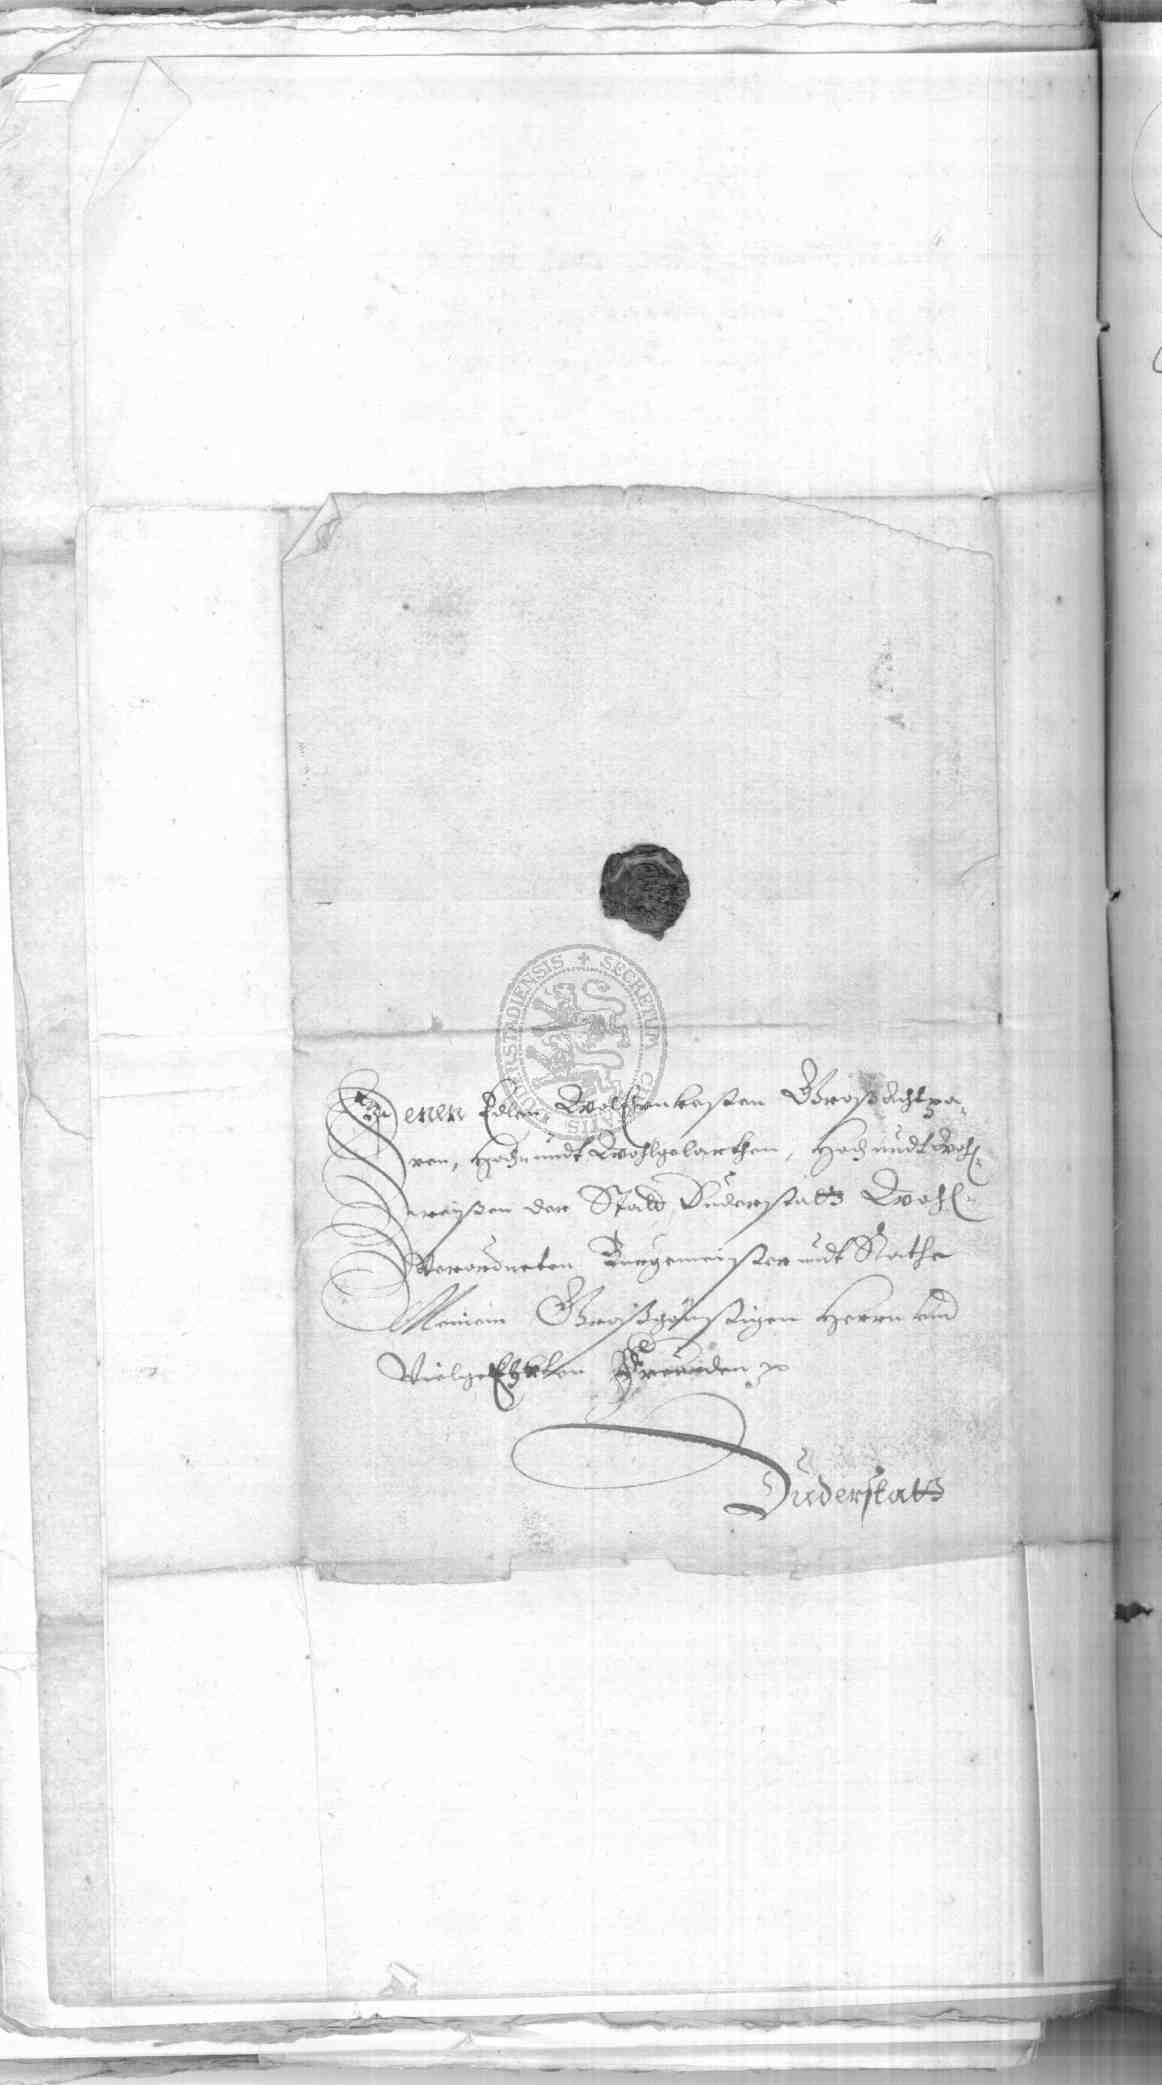 Denen Edlen, Wolehrnvesten Großachtpa-
ren, Hoch undt Wohlgelarthen, Hoch undt Wohl-
weißen der Stadt Duderstatt Wohl-
Verordneten Burgemeister undt Rathe
Meinen Großgünstigen Herrn und
Vielgeehrten Freunden
Duderstatt
SECRETUM CIVITATIS DUDERSTADIENSIS